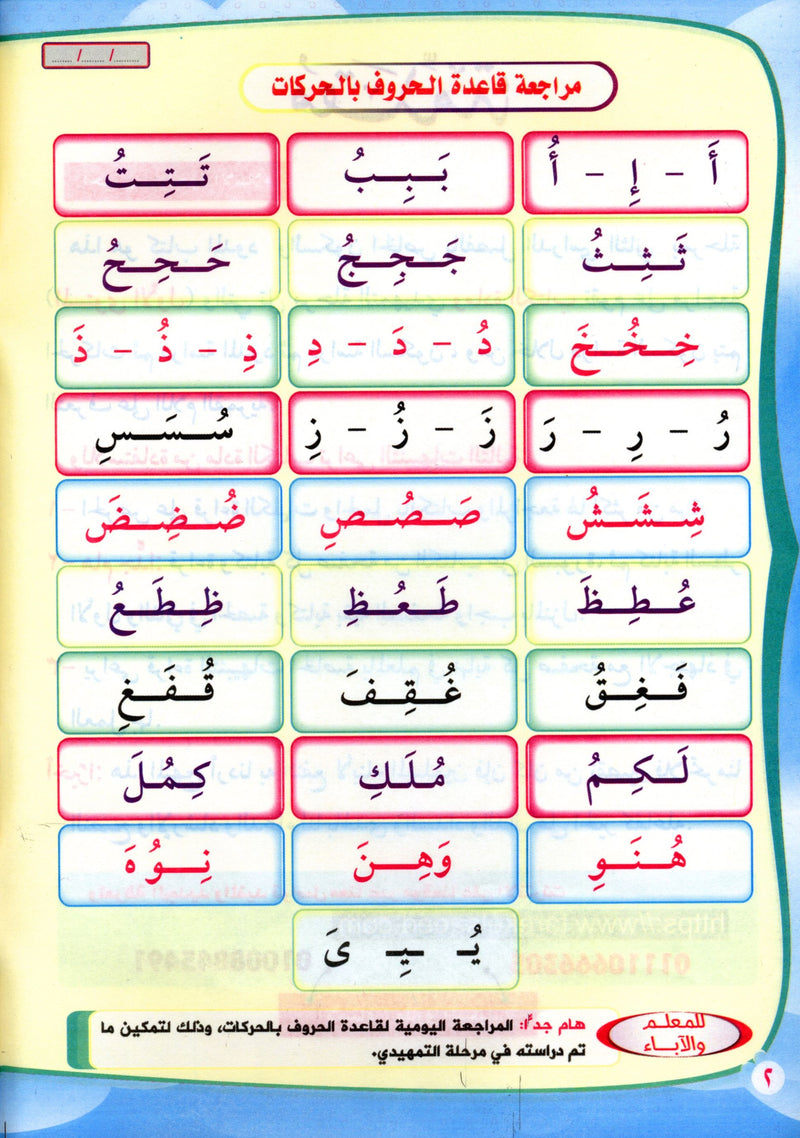 ....... / ....... / .......
مراجعة قاعدة الحروف بالحركات
أَ - إِ - أُ
بَـبِـبُ
تَـتِـتُ
ثَـثِـثُ
جَـجِـجُ
حَـحِـحُ
خِـخُـخَ
دُ - دَ - دِ
ذِ - ذُ - ذَ
رُ - رِ - رَ
زَ - زُ - زِ
سُـسَـسِ
شِـشَـشُ
صَـصُـصِ
ضُـضِـضَ
عُـطِـظَ
طَـعُـظِ
ظِـطَـعُ
فَـغِـقُ
غُـقِـفَ
قُـفَـغِ
لَـكِـمُ
مُـلَـكِ
كِـمُـلَ
هُـنَـوِ
وَهِـنَ
نِـوُ هَ
يُـ ـيِـ ىَ
للمعلم والآباء
هام جدًّا: المراجعة اليومية لقاعدة الحروف بالحركات، وذلك لتمكين ما
تم دراسته في مرحلة التمهيدي.
٢